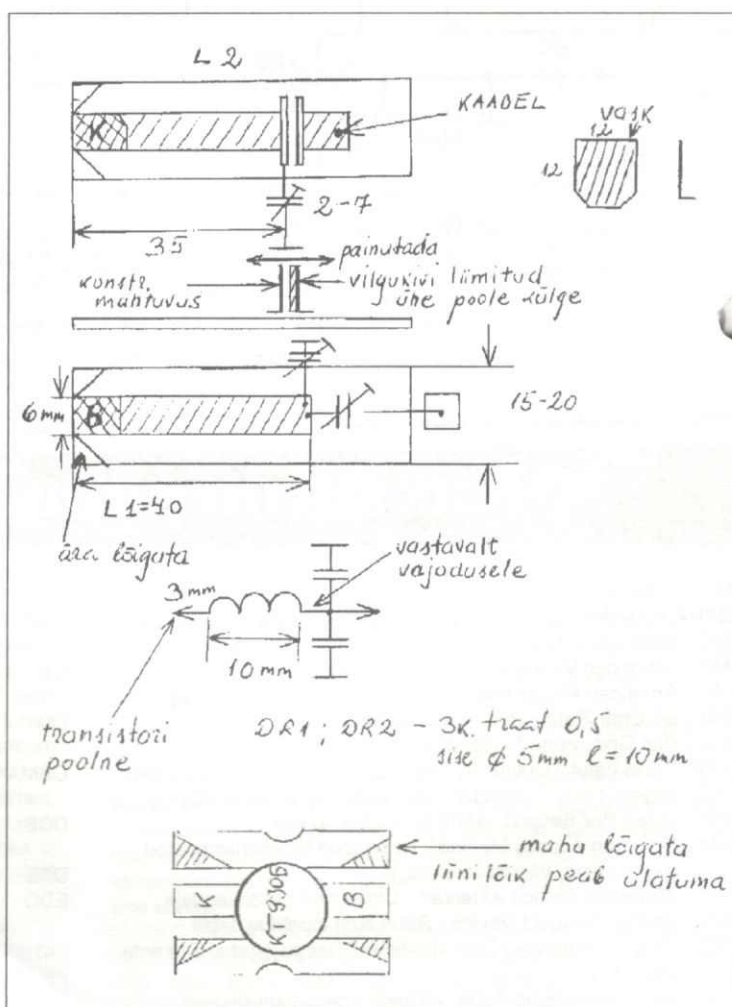 L 2
KAABEL
K
12
vask
12
2-7
35
painutada
konstr.
mahtuvus
vilgukivi liimitud
ühe poole külge
6mm
B
15-20
L1=40
ära lõigata
3mm
vastavalt
vajadusele
10mm
transistori
poolne
DR1; DR2 - 3K. traat 0,5
sise ϕ 5mm l=10mm
K
КТ930Б
B
maha lõigata
liini lõik peab ülatuma